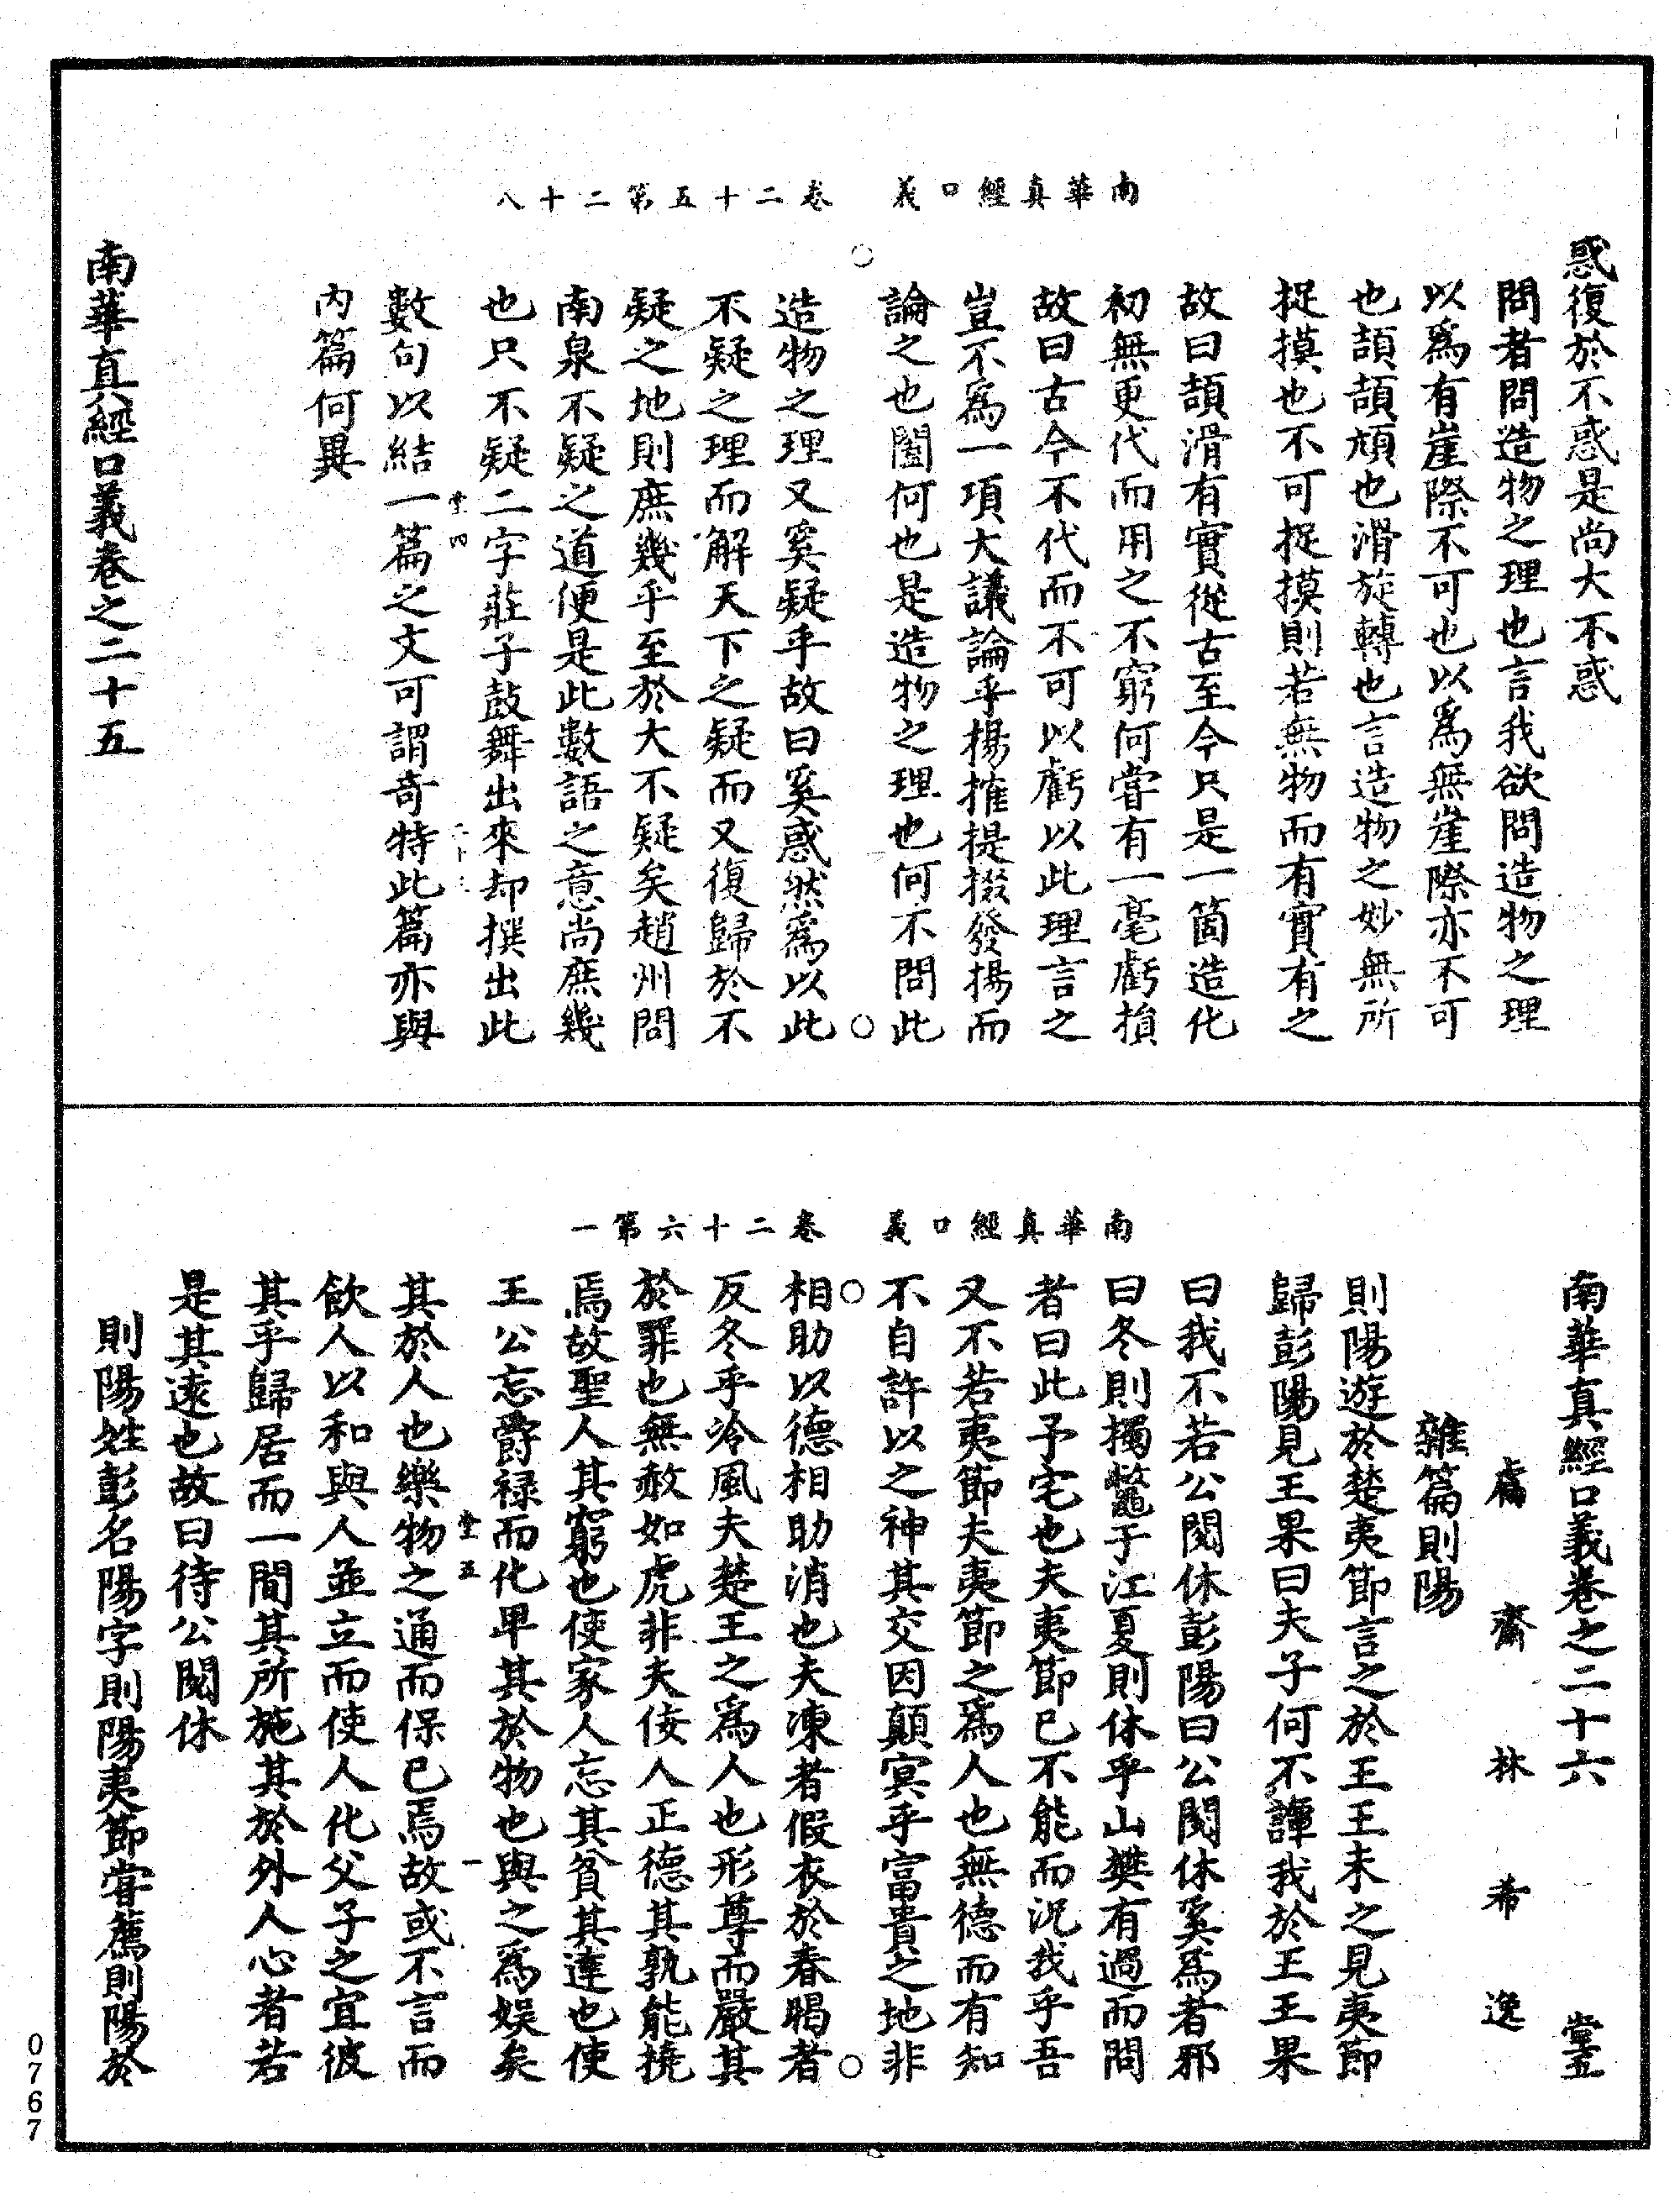 南華真經口義　卷二十五第二十八
惑復於不惑是尚大不惑
問者問造物之理也言我欲問造物之理
以爲有崖際不可也以爲無崖際亦不可
也頡頡頏也滑旋轉也言造物之妙無所
捉摸也不可捉摸則若無物而有實有之
故曰頡滑有實從古至今只是一箇造化
初無更代而用之不窮何嘗有一毫虧損
故曰古今不代而不可以虧以此理言之
豈不爲一項大議論乎揚搉提掇發揚而
論之也闔何也是造物之理也何不問此
造物之理又奚疑乎故曰奚惑然爲以此
不疑之理而解天下之疑而又復歸於不
疑之地則庶幾乎至於大不疑矣趙州問
南泉不疑之道便是此數語之意尚庶幾
也只不疑二字莊子鼓舞出來却撰出此
堂四
數句以結一篇之文可謂奇特此篇亦與
內篇何異
南華真經口義卷之二十五
南華真經口義　卷二十六第一
南華真經口義卷之二十六　堂五
鬳齋林希逸
雜篇則陽
則陽遊於楚夷節言之於王王未之見夷節
歸彭陽見王果曰夫子何不譚我於王王果
曰我不若公閱休彭陽曰公閱休奚爲者邪
曰冬則擉鼈于江夏則休乎山樊有過而問
者曰此予宅也夫夷節已不能而況我乎吾
又不若夷節夫夷節之爲人也無德而有知
不自許以之神其交因顛冥乎富貴之地非
相助以德相助消也夫凍者假衣於春暍者
反冬乎冷風夫楚王之爲人也形尊而嚴其
於罪也無赦如虎非夫佞人正德其孰能撓
焉故聖人其窮也使家人忘其貧其達也使
王公忘爵祿而化卑其於物也與之爲娛矣
堂五　一
其於人也樂物之通而保已焉故或不言而
飲人以和與人並立而使人化父子之宜彼
其乎歸居而一閒其所施其於外人心者若
是其遠也故曰待公閱休
則陽姓彭名陽字則陽夷節嘗薦則陽於
0767